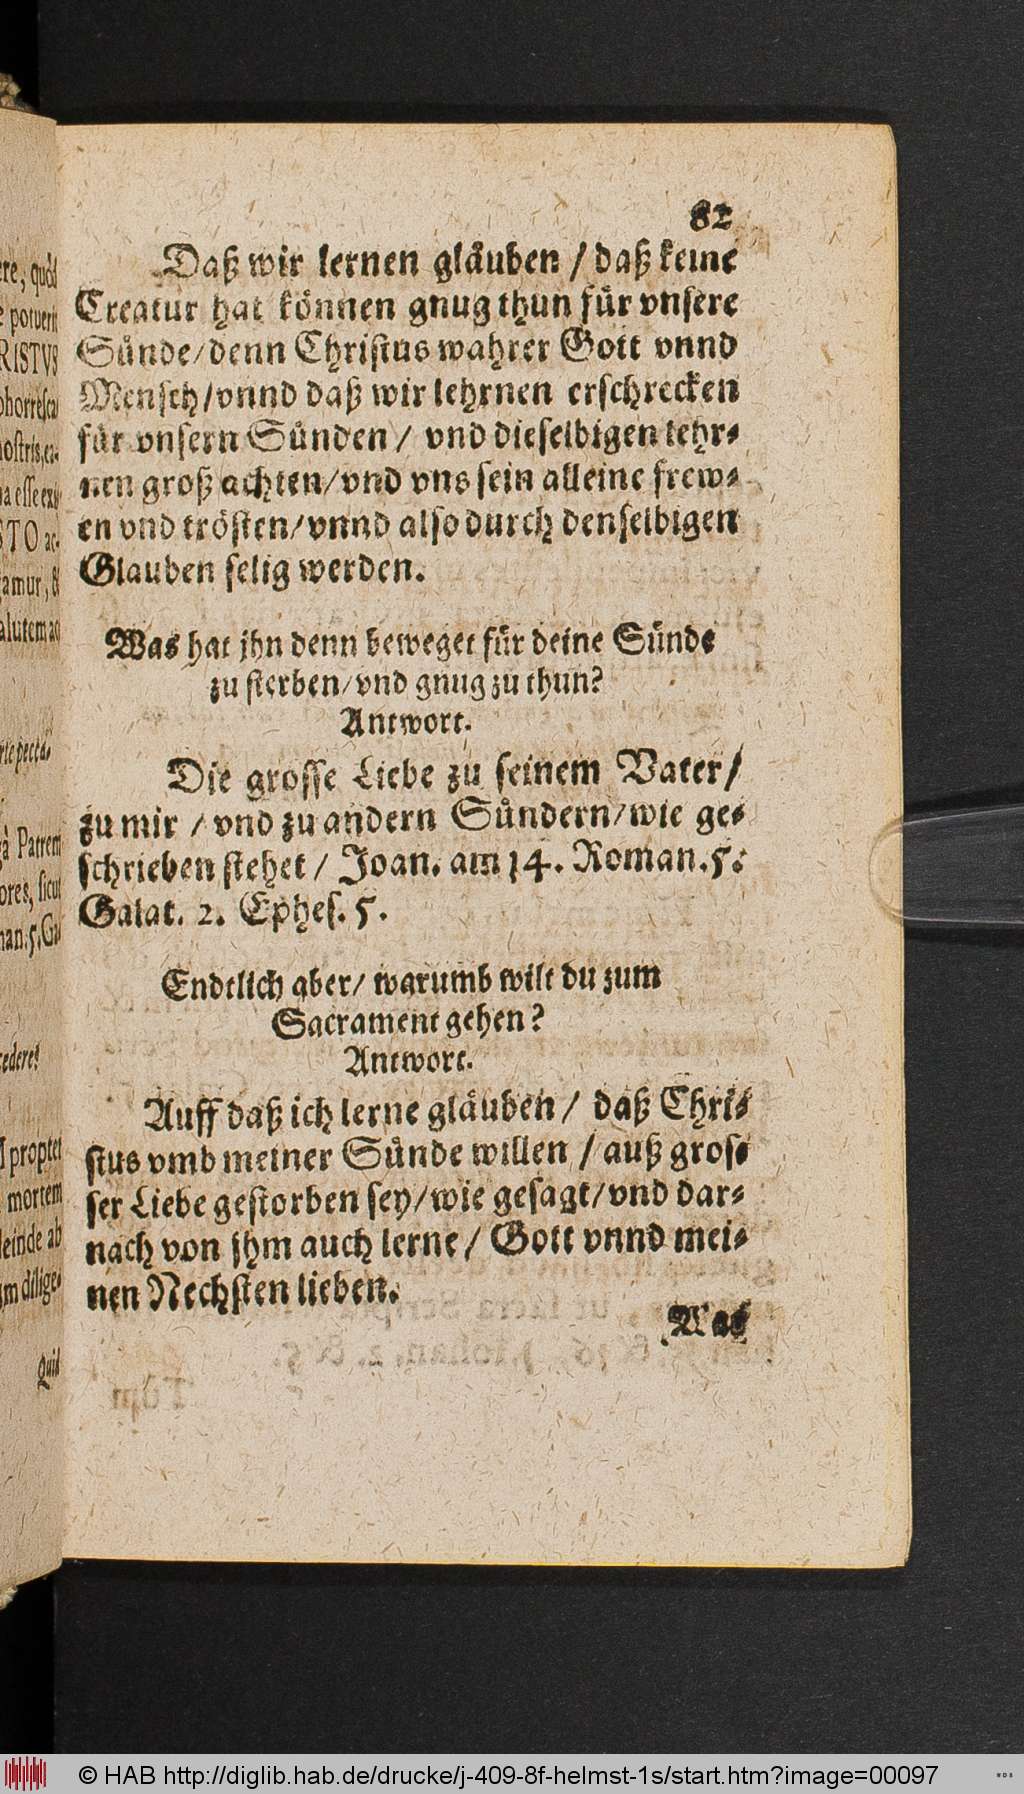 82
Daß wir lernen gläuben / daß keine
Creatur hat können gnug thun für vnsere
Sünde / denn Christus wahrer Gott vnnd
Mensch / vnnd daß wir lehrnen erschrecken
für vnsern Sünden / vnd dieselbigen lehr-
nen groß achten / vnd vns sein alleine frew-
en vnd trösten / vnnd also durch denselbigen
Glauben selig werden.
Was hat jhn denn beweget für deine Sünde
zu sterben / vnd gnug zu thun?
Antwort.
Die grosse Liebe zu seinem Vater /
zu mir / vnd zu andern Sündern / wie ge-
schrieben stehet / Joan. am 14. Roman. 5.
Galat. 2. Ephes. 5.
Endtlich aber / warumb wilt du zum
Sacrament gehen?
Antwort.
Auff daß ich lerne gläuben / daß Chri-
stus vmb meiner Sünde willen / auß gros-
ser Liebe gestorben sey / wie gesagt / vnd dar-
nach von jhm auch lerne / Gott vnnd mei-
nen Nechsten lieben.
Was
ere, quòd
potuerit
RISTVS
STO ac-
amur, &
à Patrem
ores, sicut
cedere?
propter
mortem
deinde ab
Quid
© HAB http://diglib.hab.de/drucke/j-409-8f-helmst-1s/start.htm?image=00097